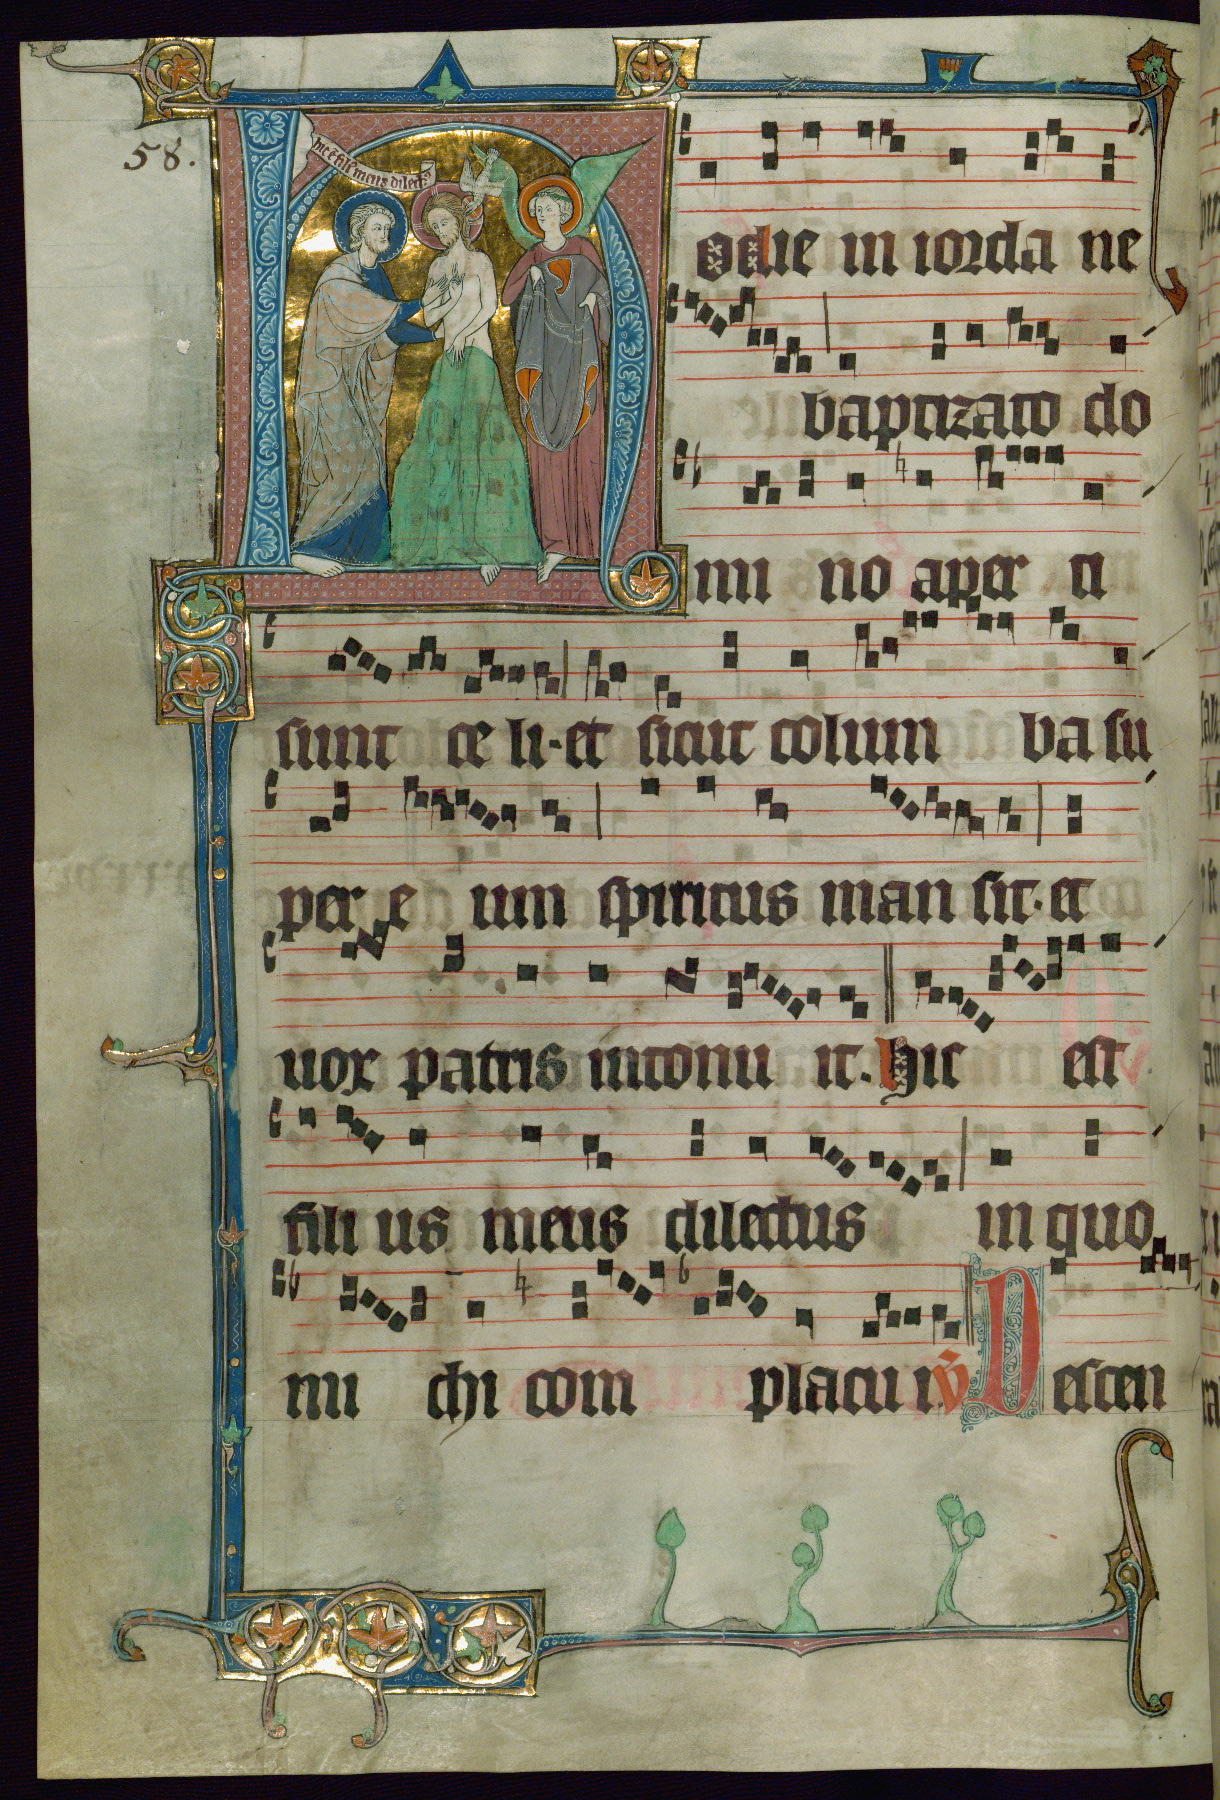 58.
hic e filius meus dilect
Hodie in iorda ne
baptizato do
mi no aper ti
sunt ce li·et sicut colum ba su
per e um spiritus man sit·et
uox patris intonu it·hic est
fili us meus dilectus in quo
mi chi com placu i ℣ Descen